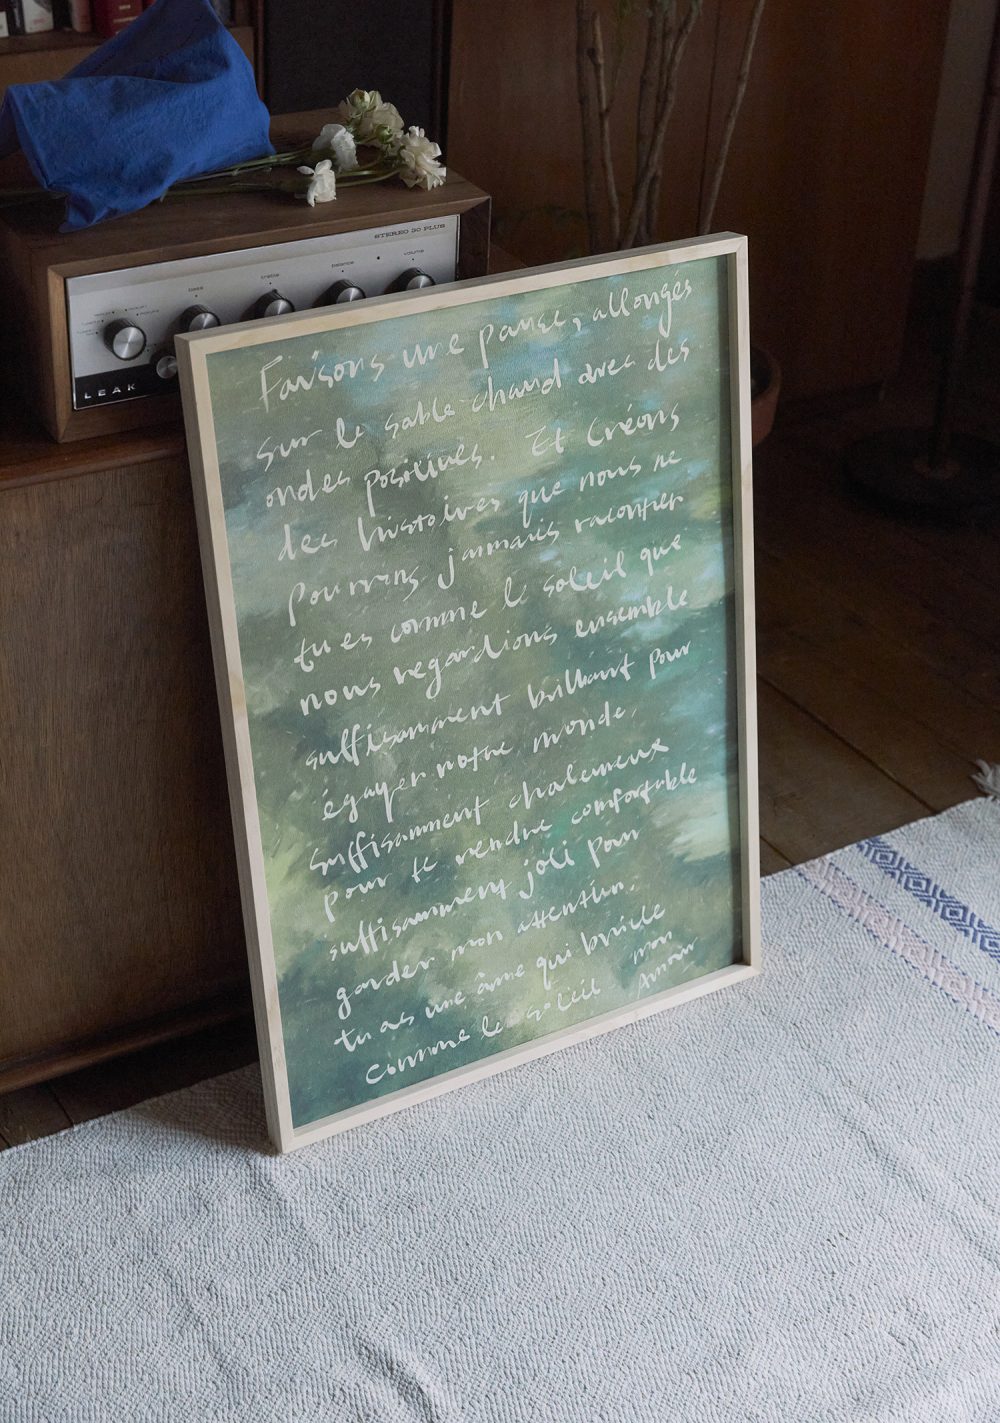 STEREO 30 PLUS
bass
treble
balance
volume
LEAK
Faisons une pause, allongés
sur le sable chaud avec des
ondes positives. Et créons
des histoires que nous ne
pourrons jammais raconter
tu es comme le soleil que
nous regardions ensemble
suffisamment brillant pour
égayer notre monde.
suffisamment chaleureux
pour te rendre comfortable
suffisamment joli pour
garder mon attention.
tu as une âme qui brille
comme le soleil mon
Amour